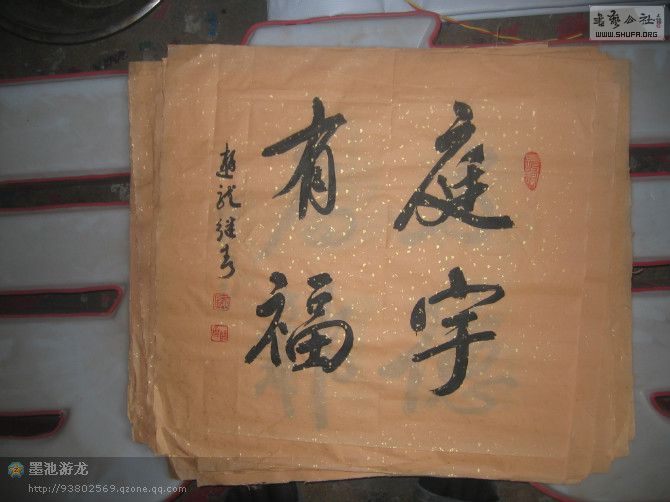 庭宇
有福
书艺公社
WWW.SHUFA.ORG
墨池游龙
http://93802569.qzone.qq.com